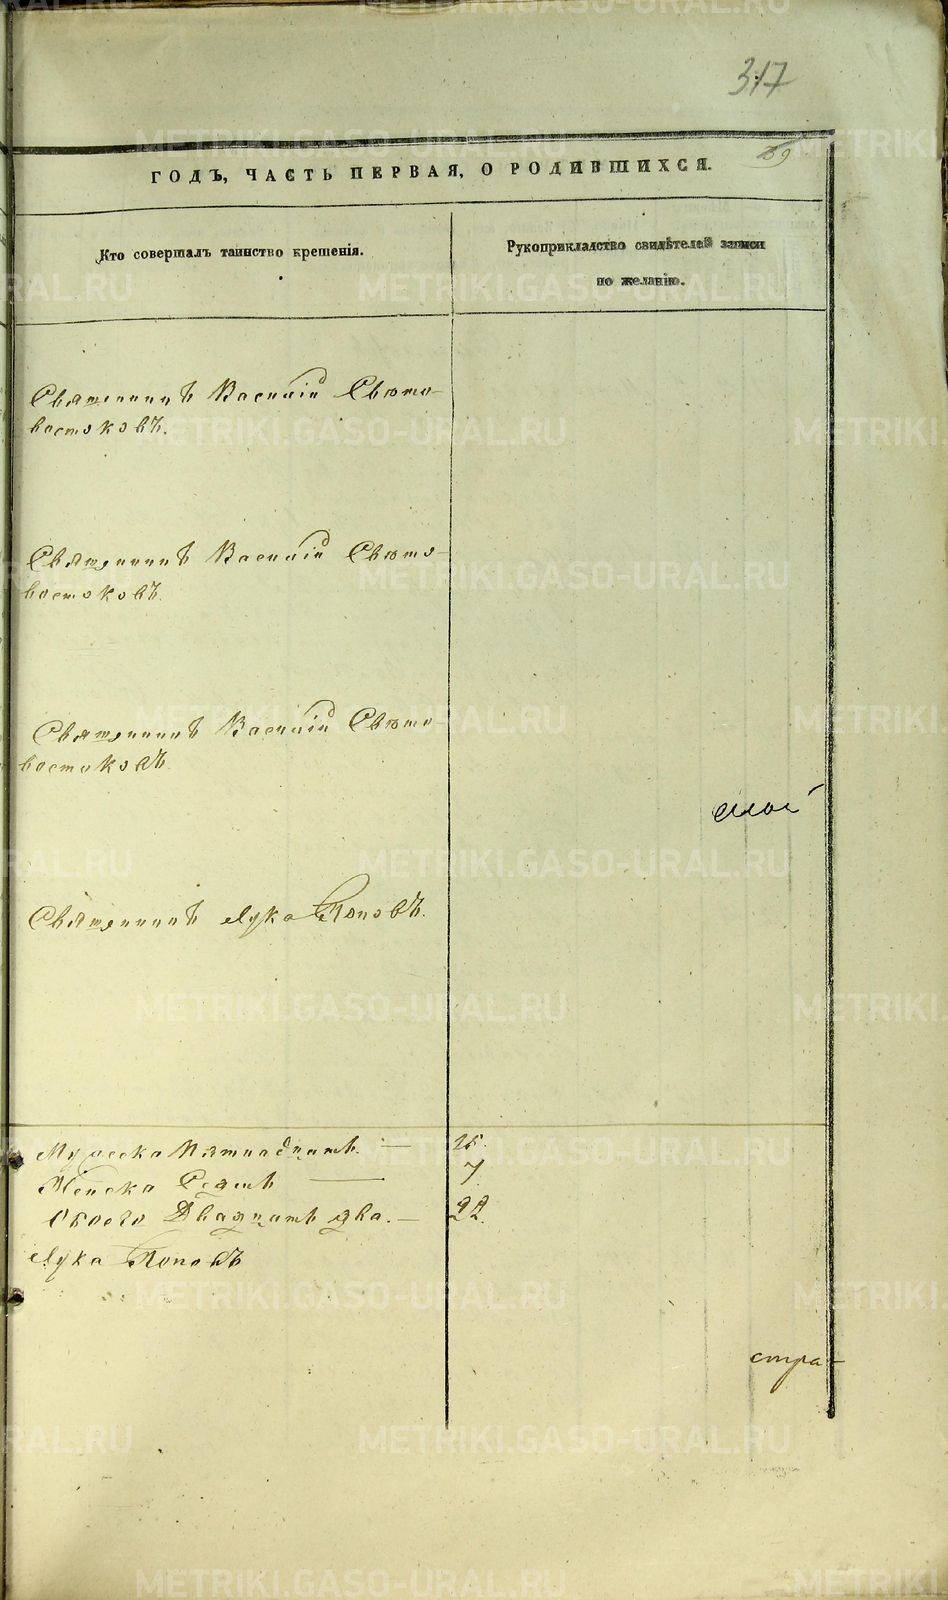 317
69
ГОДЪ, ЧАСТЬ ПЕРВАЯ, О РОДИВШИХСЯ.
Кто совершалъ таинство крещенія.
Рукоприкладство свидѣтелей записи
по желанію.
Священникъ Василій Свѣто-
востоковъ.
Священникъ Василій Свѣто-
востоковъ.
Священникъ Василій Свѣто-
востоковъ.
Священникъ Лука Поповъ.
Мужеска Пятнадцать. — 15.
Женска Седмь — 7.
Обоего Двадцать два. — 22.
Лука Поповъ
стра-
METRIKI.GASO-URAL.RU